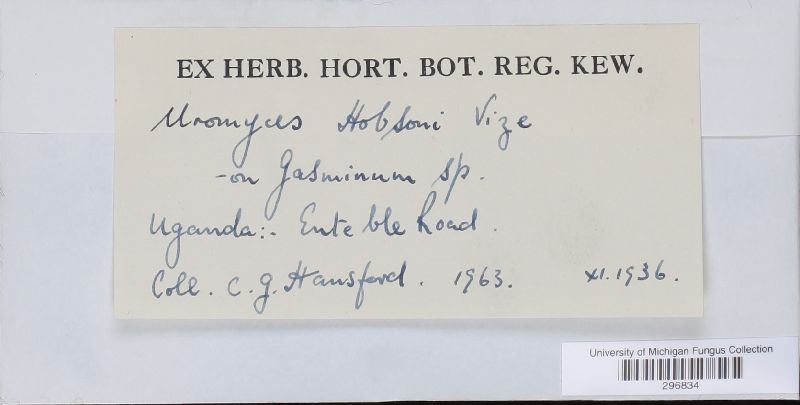 EX HERB. HORT. BOT. REG. KEW.
Uromyces Hobsoni Vize
-on Jasminum sp.
Uganda:- Enteble Road.
Coll. C. G. Hansford. 1963. XI. 1936.
University of Michigan Fungus Collection
296834